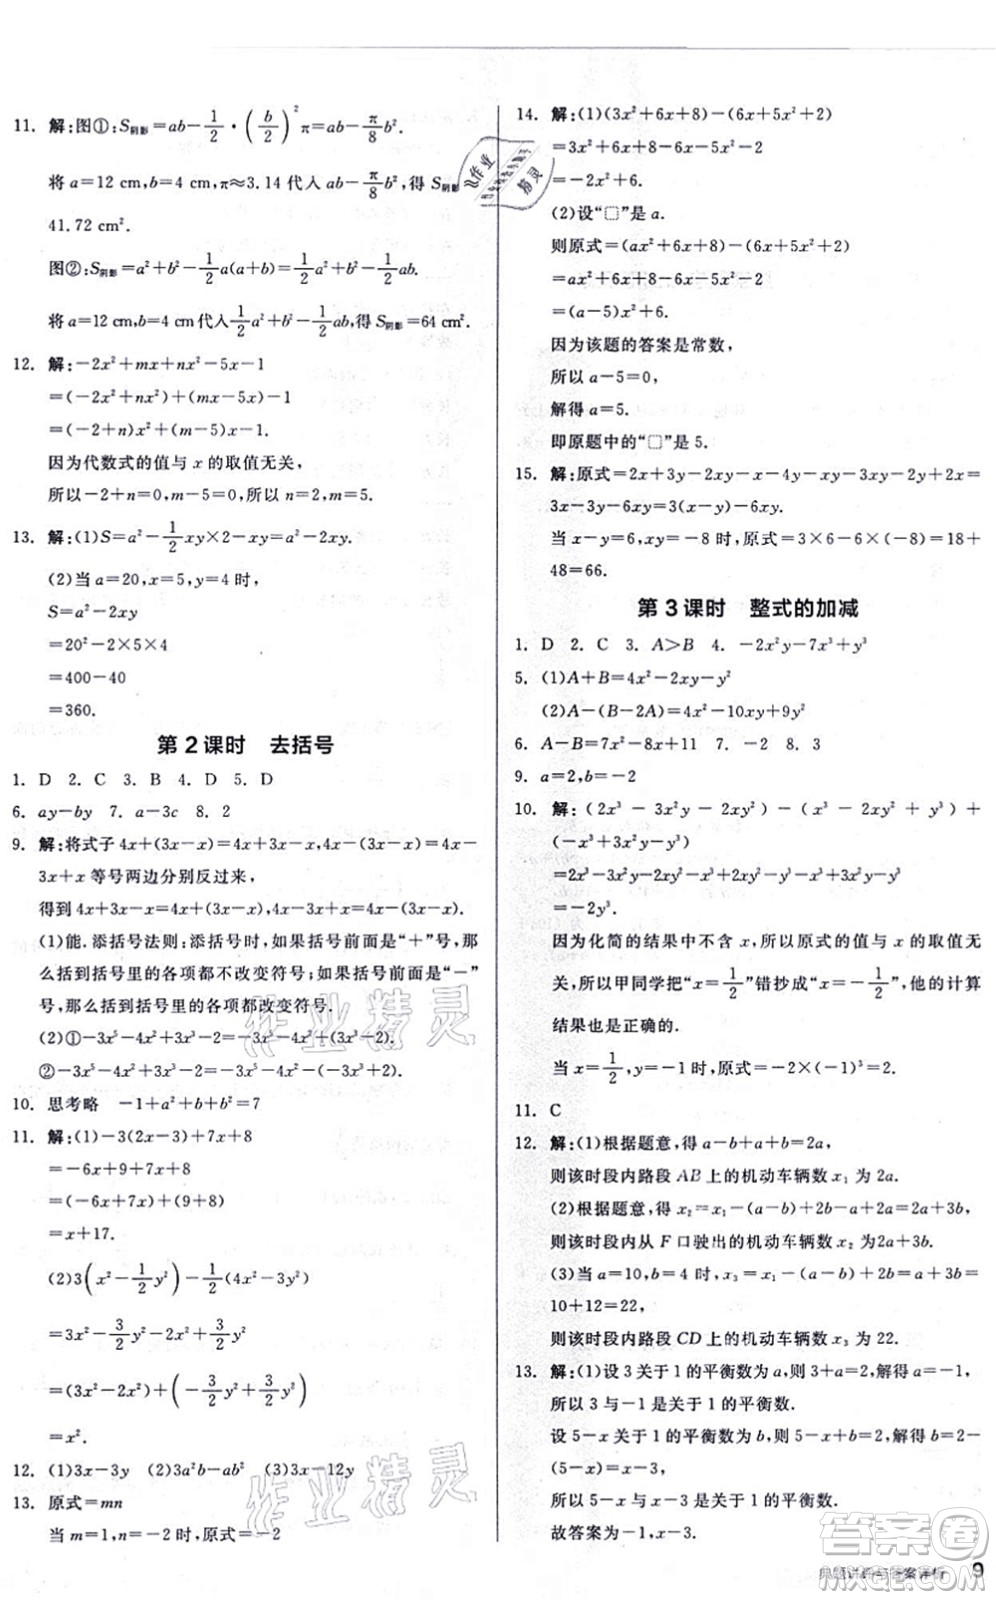 11. 解:图①:S阴影=ab-1/2·(b/2)²π=ab-π/8b².
将 a=12 cm,b=4 cm,π≈3.14 代入 ab-π/8b²,得 S阴影
41.72 cm².
图②:S阴影=a²+b²-1/2a(a+b)=1/2a²+b²-1/2ab.
将 a=12 cm,b=4 cm代入1/2a²+b²-1/2ab,得 S阴影=64 cm².
12. 解:-2x²+mx+nx²-5x-1
=(-2x²+nx²)+(mx-5x)-1
=(-2+n)x²+(m-5)x-1.
因为代数式的值与 x 的取值无关,
所以-2+n=0,m-5=0,所以 n=2,m=5.
13. 解:(1)S=a²-1/2xy×2-xy=a²-2xy.
(2)当 a=20,x=5,y=4 时,
S=a²-2xy
=20²-2×5×4
=400-40
=360.
第2课时 去括号
1. D 2. C 3. B 4. D 5. D
6. ay-by 7. a-3c 8. 2
9. 解:将式子 4x+(3x-x)=4x+3x-x,4x-(3x-x)=4x-
3x+x 等号两边分别反过来,
得到 4x+3x-x=4x+(3x-x),4x-3x+x=4x-(3x-x).
(1)能.添括号法则:添括号时,如果括号前面是“+”号,
那么括到括号里的各项都不改变符号;如果括号前面是“-”
号,那么括到括号里的各项都改变符号.
(2)①-3x⁵-4x²+3x³-2=-3x⁵-4x²+(3x³-2).
②-3x⁵-4x²+3x³-2=-3x⁵-(4x²-3x³+2).
10. 思考略 -1+a²+b+b²=7
11. 解:(1)-3(2x-3)+7x+8
=-6x+9+7x+8
=(-6x+7x)+(9+8)
=x+17.
(2)3(x²-1/2y²)-1/2(4x²-3y²)
=3x²-3/2y²-2x²+3/2y²
=(3x²-2x²)+(-3/2y²+3/2y²)
=x².
12. (1)3x-3y (2)3a²b-ab² (3)3x-12y
13. 原式=mn
当 m=1,n=-2 时,原式=-2
14. 解:(1)(3x²+6x+8)-(6x+5x²+2)
=3x²+6x+8-6x-5x²-2
=-2x²+6.
(2)设“□”是 a.
则原式=(ax²+6x+8)-(6x+5x²+2)
=ax²+6x+8-6x-5x²-2
=(a-5)x²+6.
因为该题的答案是常数,
所以 a-5=0,
解得 a=5.
即原题中的“□”是 5.
15. 解:原式=2x+3y-2xy-x-4y-xy-3xy+2x-2y-2xy=
3x-3y-6xy=3(x-y)-6xy.
当 x-y=6,xy=-8 时,原式=3×6-6×(-8)=18+
48=66.
第3课时 整式的加减
1. D 2. C 3. A>B 4. -2x²y-7x³+y³
5. (1)A+B=4x²-2xy-y²
(2)A-(B-2A)=4x²-10xy+9y²
6. A-B=7x²-8x+11 7. -2 8. 3
9. a=2,b=-2
10. 解:(2x³-3x²y-2xy²)-(x³-2xy²+y³)+
(-x³+3x²y-y³)
=2x³-3x²y-2xy²-x³+2xy²-y³-x³+3x²y-y³
=-2y³.
因为化简的结果中不含 x,所以原式的值与 x 的取值无
关,所以甲同学把“x=1/2”错抄成“x=-1/2”,他的计算
结果也是正确的.
当 x=1/2,y=-1 时,原式=-2×(-1)³=2.
11. C
12. 解:(1)根据题意,得 a-b+a+b=2a,
则该时段内路段 AB 上的机动车辆数 x₁ 为 2a.
(2)根据题意,得 x₂=x₁-(a-b)=2a-a+b=a+b,
则该时段内从 F 口驶出的机动车辆数 x₂ 为 a+b.
(3)当 a=10,b=4 时,x₃=x₁-(a-b)+12=a+b+12=
10+12=22,
则该时段内路段 CD 上的机动车辆数 x₃ 为 22.
13. 解:(1)设 3 关于 1 的平衡数为 a,则 3+a=2,解得 a=-1,
所以 3 与-1 是关于 1 的平衡数,
设 5-x 关于 1 的平衡数为 b,则 5-x+b=2,解得 b=2-
(5-x)=x-3,
所以 5-x 与 x-3 是关于 1 的平衡数.
故答案为-1,x-3.
9
作业精灵
作业精灵
答案卷